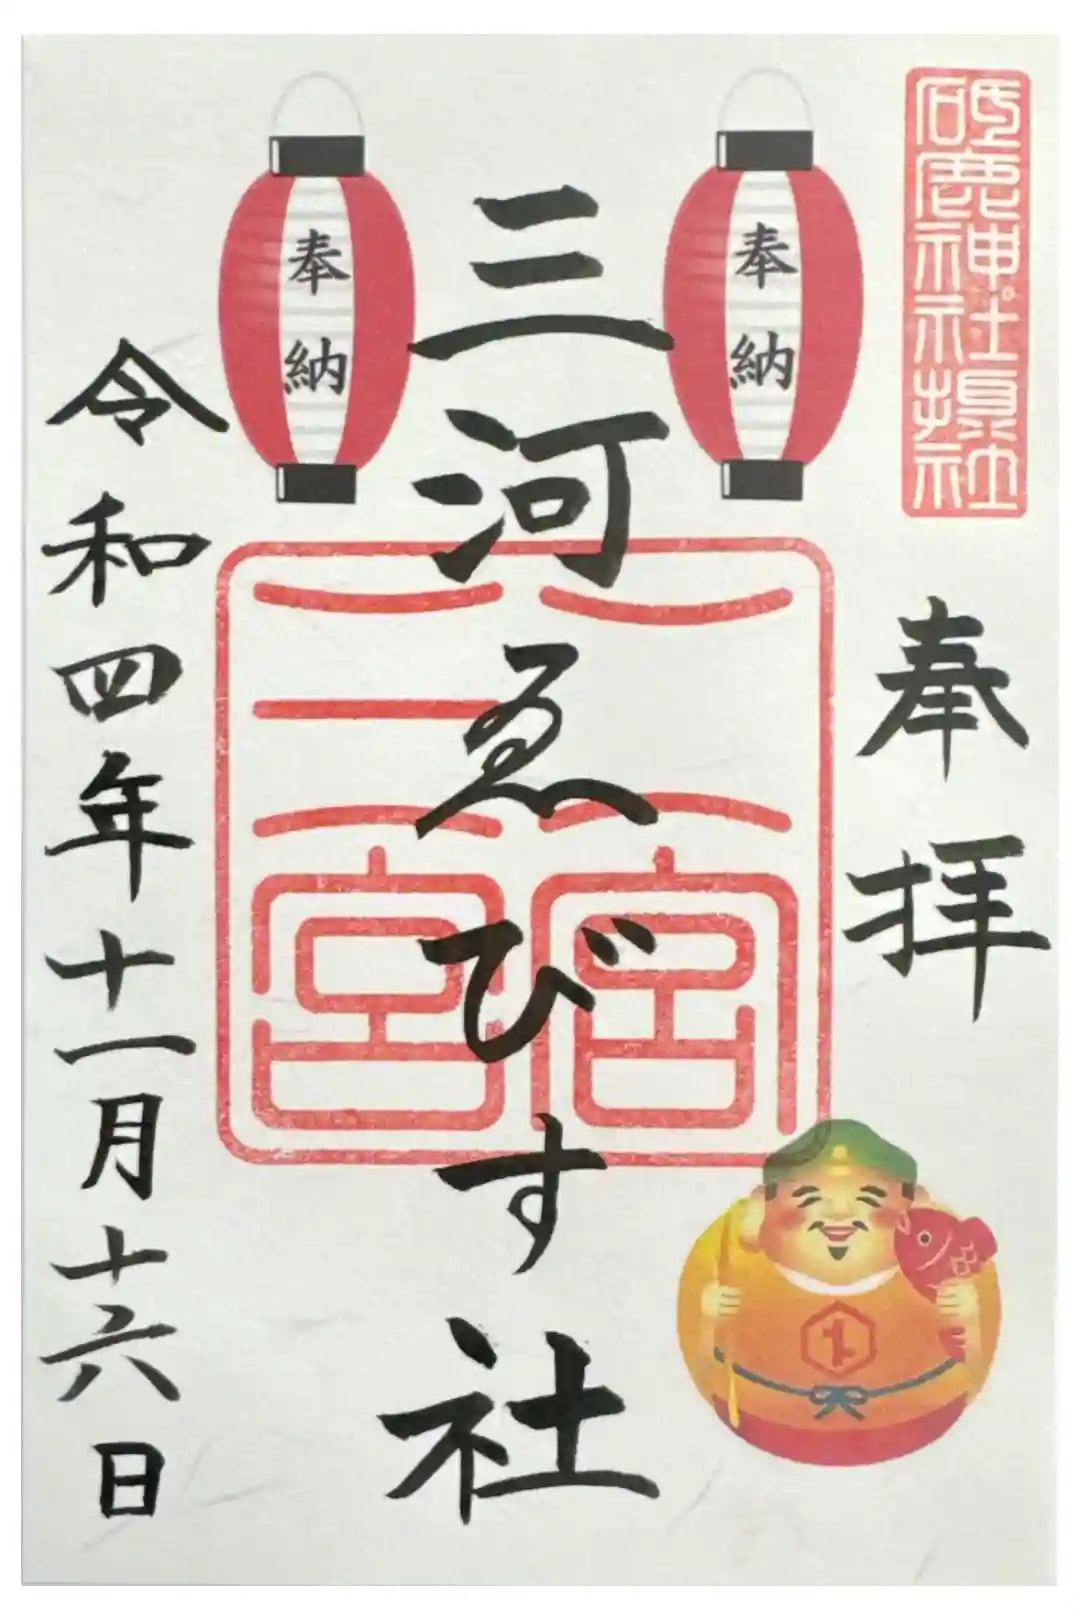 砥鹿神社摂社
奉拝
奉納
三河ゑびす社
奉納
二宮
三宮
令和四年十一月十六日